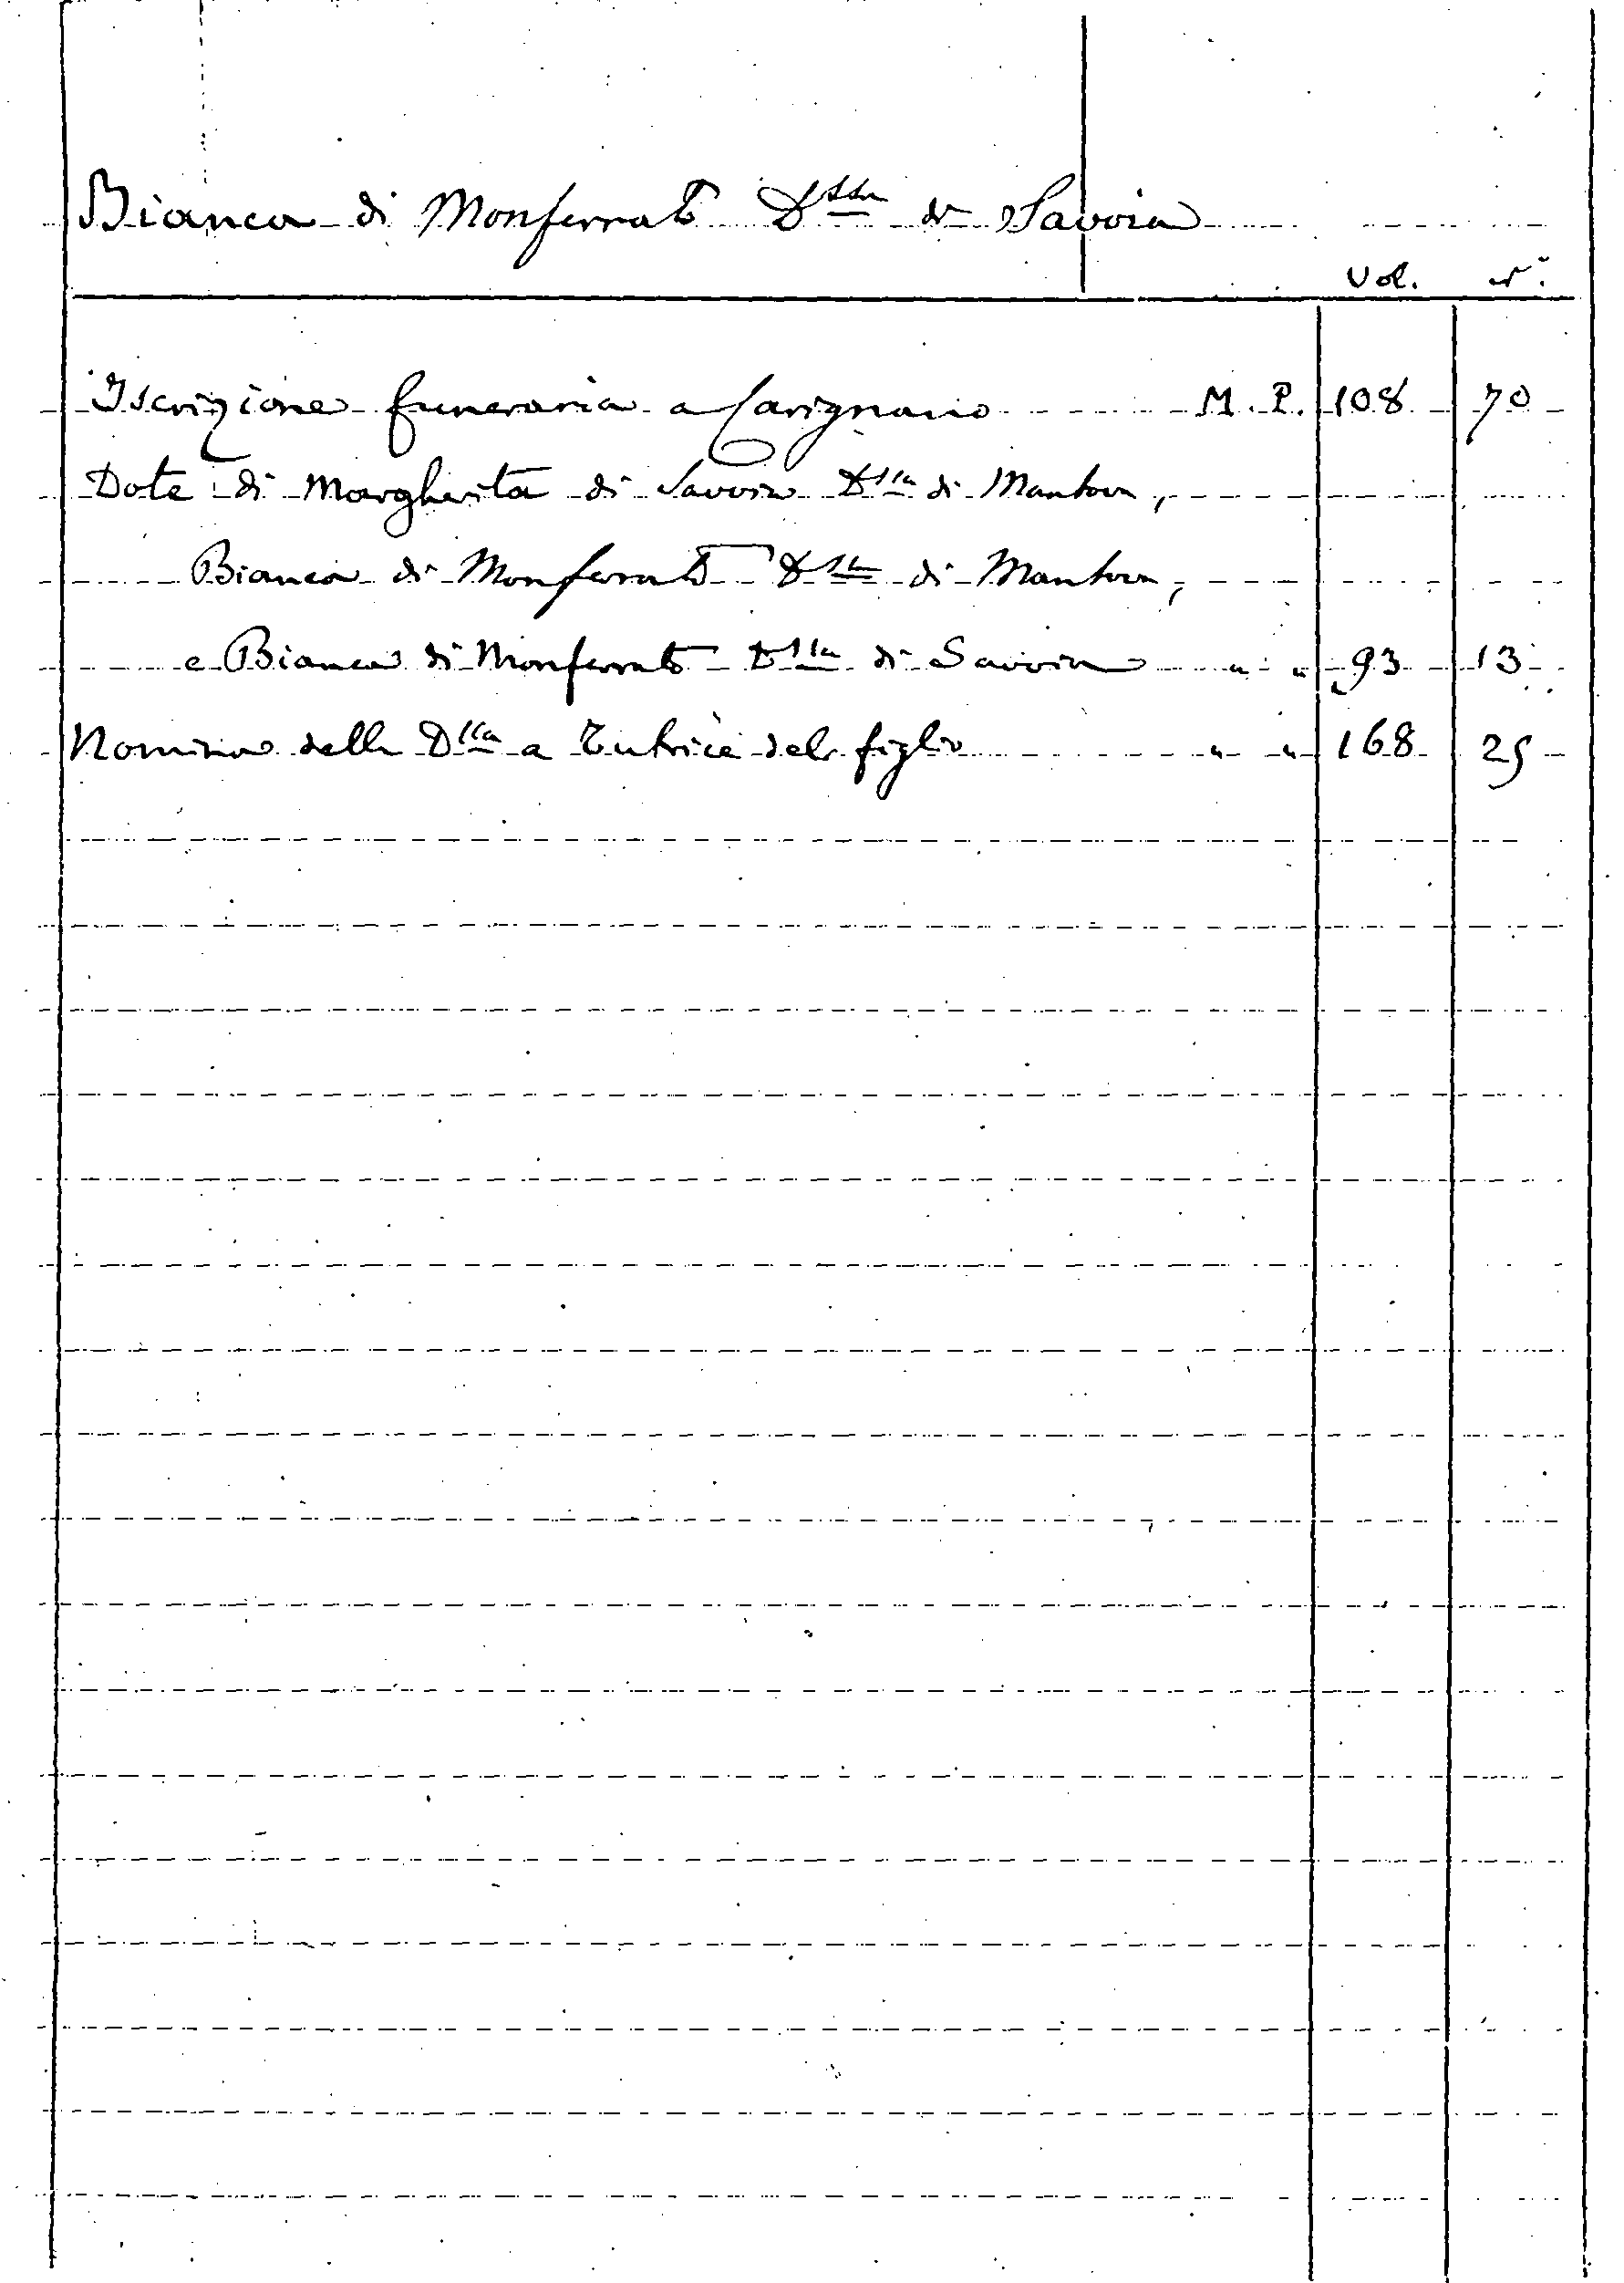 Bianca di Monferrato Dssa di Savoia
Vol. n°.
Iscrizione funeraria a Carignano M. P. 108 70
Dote di Margherita di Savoia Dssa di Mantova,
Bianca di Monferrato Dssa di Mantova,
e Bianca di Monferrato Dssa di Savoia " " 93 13
Nomina della Dssa a Tutrice del figlio " " 168 25